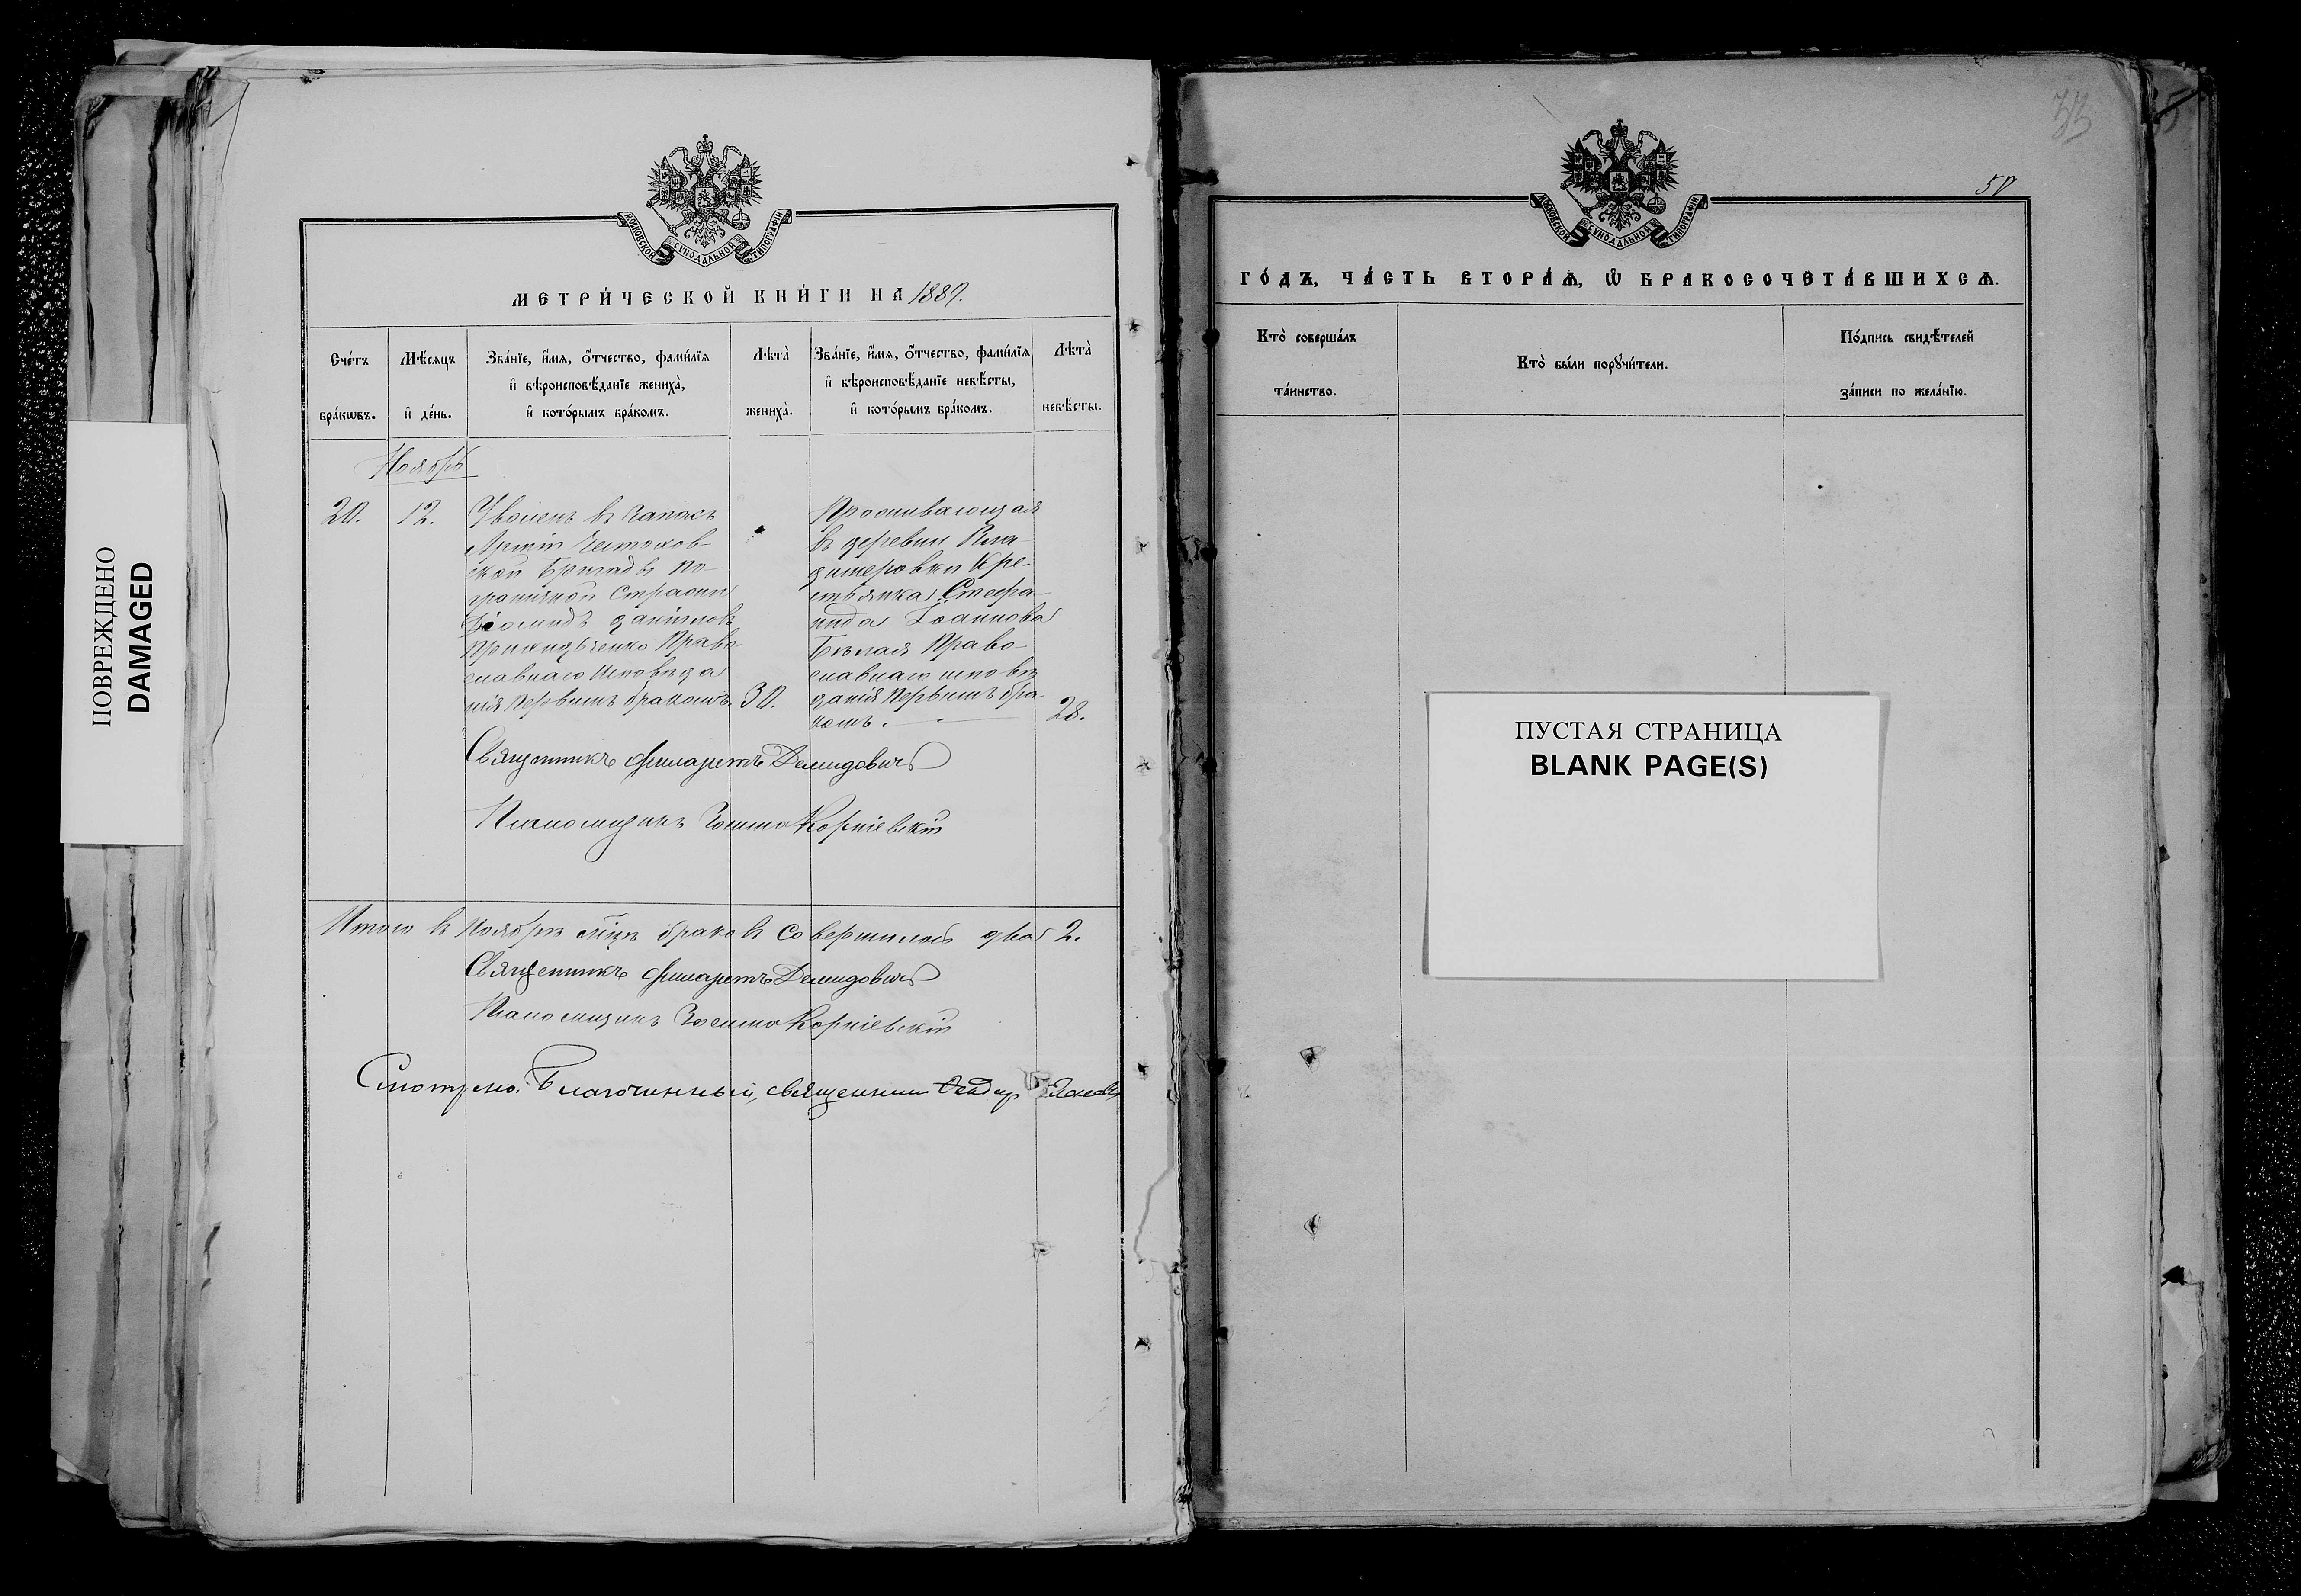 ПОВРЕЖДЕНО
DAMAGED
МОСКОВСКОЙ СѴНОДАЛЬНОЙ ТИПОГРАФІИ
МЕТРИ́ЧЕСКОЙ КНИ́ГИ НА 1889.
Сче́тъ бра́кѡвъ.
Мѣ́сѧцъ и҆ де́нь.
Зва́нїе, и҆́мѧ, ѻ҆́тчество, фами́лїѧ и҆ вѣроисповѣ́данїе жениха̀, и҆ кото́рымъ бра́комъ.
Лѣта̀ жениха̀.
Зва́нїе, и҆́мѧ, ѻ҆́тчество, фами́лїѧ и҆ вѣроисповѣ́данїе невѣ́сты, и҆ кото́рымъ бра́комъ.
Лѣта̀ невѣ́сты.
Ноябрь
20.
12.
Уволен въ Запасъ
Арміи
ской Бригады По-
граничной Стражи
Діомидъ Даніиловъ
Право-
славнаго Исповѣда
нія Первымъ бракомъ.
30.
Проживающая
въ деревни Вла-
димеровки Кре-
стьянка Стефа-
нида Іоаннова
Бѣлая Право-
славнаго исповѣ
данія Первымъ бра-
комъ.
28.
Священникъ Филаретъ Демидовичъ
Псаломщикъ Зосима Корніевскій
Итого в Ноябрѣ мѣцѣ браков совершилось два 2.
Священникъ Филаретъ Демидовичъ
Псаломщикъ Зосима Корніевскій
Смотрено: Благочинный, священник
50
ГО́ДЪ, ЧА́СТЬ ВТОРА́Ѧ, Ѽ БРАКОСОЧЕТА́ВШИХСѦ.
Кто̀ соверша́лъ та́инство.
Кто̀ бы́ли порꙋчи́тели.
По́дпись свидѣ́телей за́писи по жела́нїю.
ПУСТАЯ СТРАНИЦА
BLANK PAGE(S)